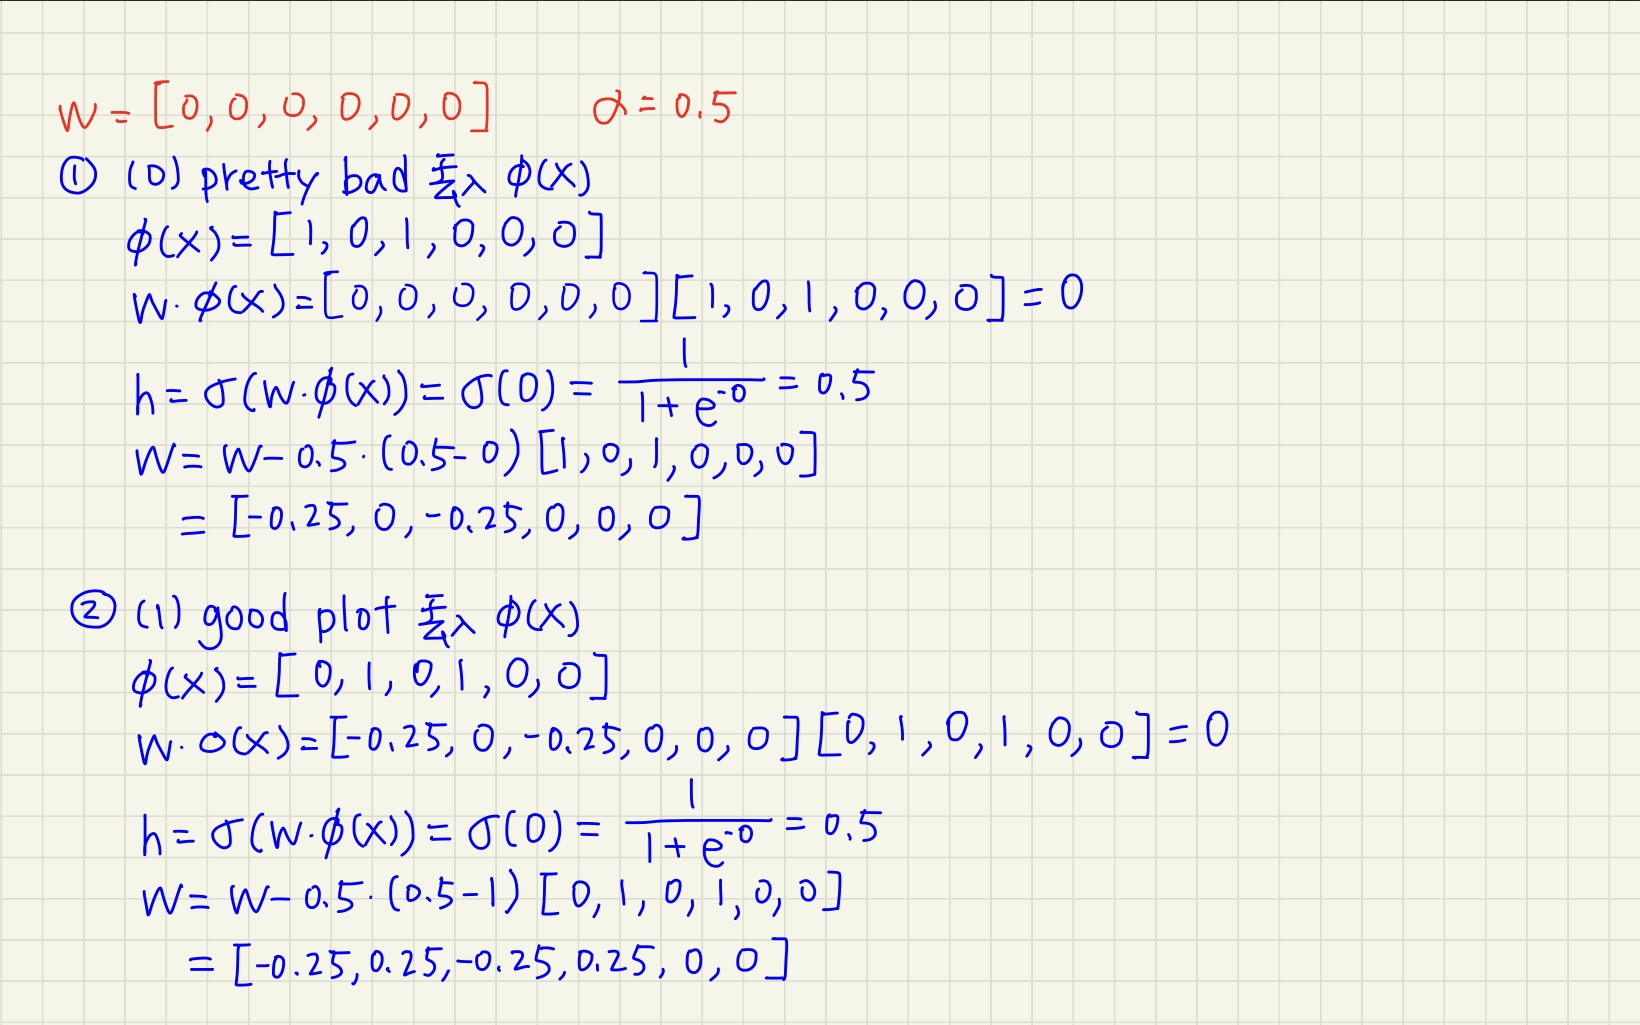 w = [0, 0, 0, 0, 0, 0] α = 0.5
① (0) pretty bad 丟入 φ(x)
φ(x) = [1, 0, 1, 0, 0, 0]
w · φ(x) = [0, 0, 0, 0, 0, 0][1, 0, 1, 0, 0, 0] = 0
h = σ(w·φ(x)) = σ(0) = 1/(1 + e^-0) = 0.5
w = w - 0.5 · (0.5 - 0) [1, 0, 1, 0, 0, 0]
= [-0.25, 0, -0.25, 0, 0, 0]
② (1) good plot 丟入 φ(x)
φ(x) = [0, 1, 0, 1, 0, 0]
w · φ(x) = [-0.25, 0, -0.25, 0, 0, 0][0, 1, 0, 1, 0, 0] = 0
h = σ(w·φ(x)) = σ(0) = 1/(1 + e^-0) = 0.5
w = w - 0.5 · (0.5 - 1) [0, 1, 0, 1, 0, 0]
= [-0.25, 0.25, -0.25, 0.25, 0, 0]